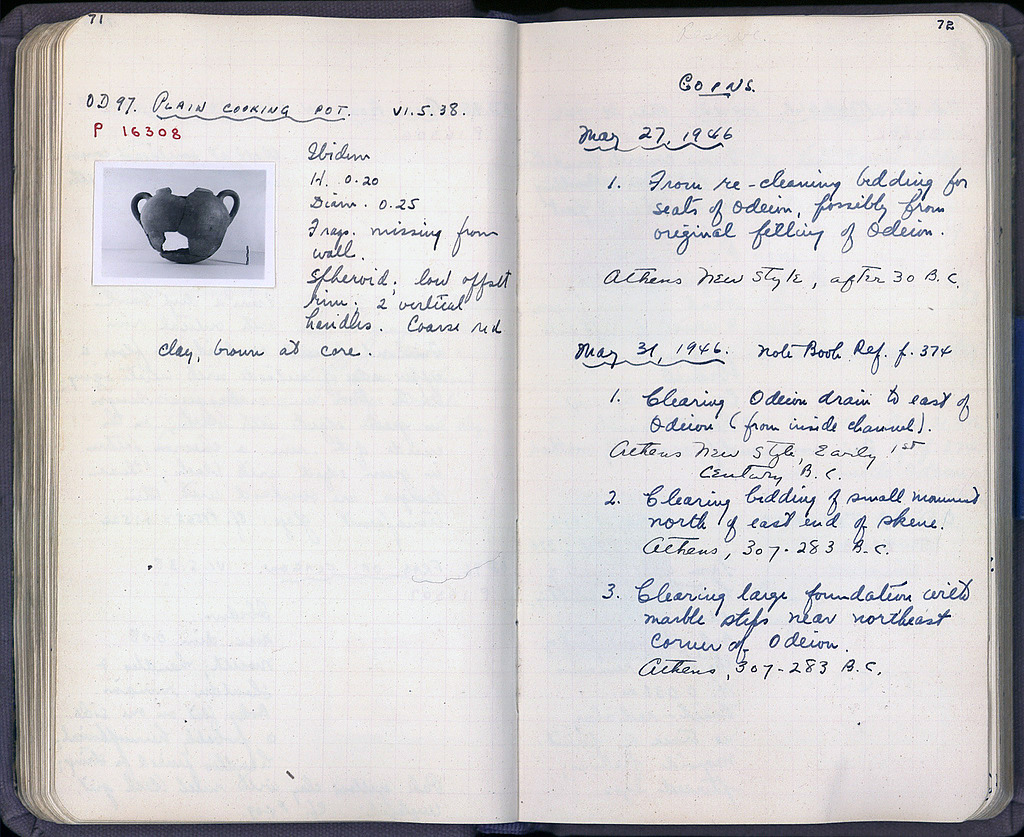 71
OD 97. PLAIN COOKING POT. VI.5.38.
P 16308
Ibidem
H. 0.20
Diam. 0.25
Frags. missing from
wall.
Spheroid; low offset
rim; 2 vertical
handles. Coarse red
clay, brown at core.
72
COINS.
May 27, 1946
1. From re-cleaning bedding for
seats of Odeion, possibly from
original filling of Odeion.
Athens New Style, after 30 B.C.
May 31, 1946. Note Book Ref. p. 374
1. Clearing Odeion drain to east of
Odeion (from inside channel).
Athens New Style, Early 1st
Century B.C.
2. Clearing bedding of small monument
north of east end of skene.
Athens, 307-283 B.C.
3. Clearing large foundation with
marble steps near northeast
corner of Odeion.
Athens, 307-283 B.C.